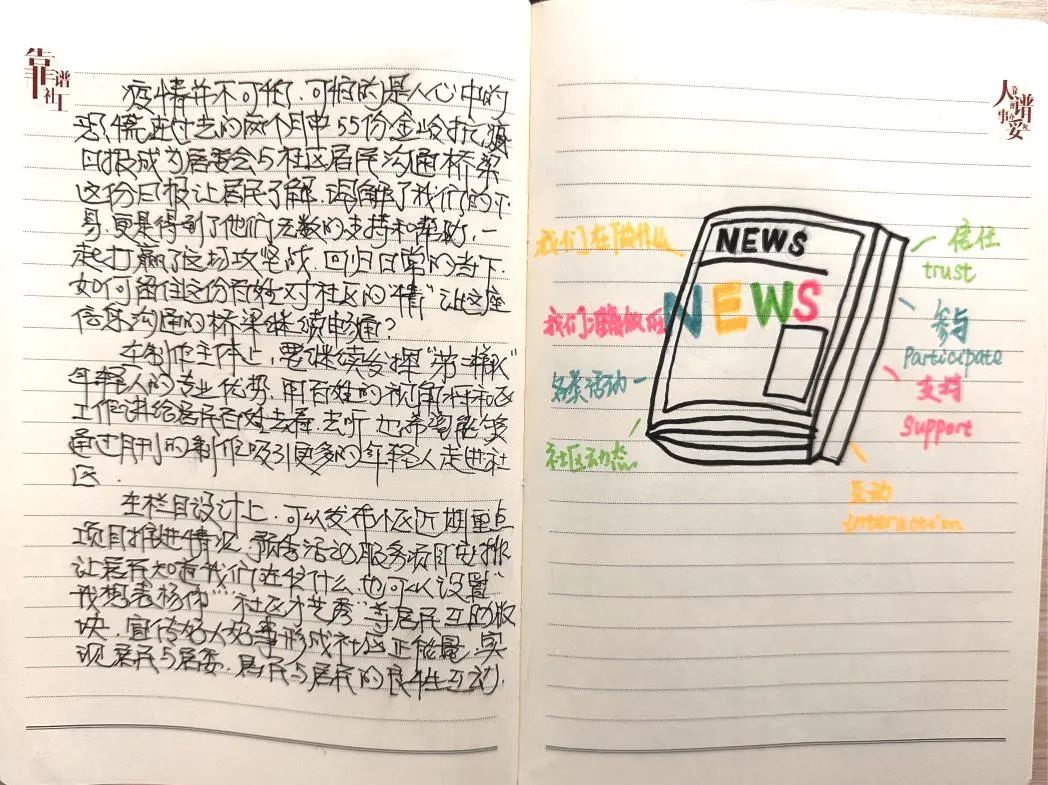 靠谱社工
疫情并不可怕,可怕的是人心中的
恐慌,在过去的两个月中55份金岭抗疫
日报成为居委会与社区居民沟通桥梁
这份日报让居民了解、理解了我们的不
易,更是得到了他们无数的支持和帮助,一
起打赢了这场攻坚战,回归日常的当下,
如何留住这份百姓对社区的"情"让这座
信息沟通的桥梁继续畅通?
在制作主体上,要继续发挥"第一梯队"
年轻人的专业优势,用百姓的视角将社区
工作讲给居民百姓去看,去听,也希望能够
通过月刊的制作吸引更多的年轻人走进社
区.
在栏目设计上,可以发布小区近期重点
项目推进情况、预告活动服务项目安排
让居民知道我们在做什么,也可以设置"
我想表扬你""社区才艺秀"等居民互助板
块,宣传好人好事形成社区正能量,实
现居民与居委、居民与居民的良性互动.
人靠谱
事办妥
NEWS
NEWS
我们在做什么
我们
各类活动
社区动态
信任
trust
参与
Participate
支持
Support
互动
interaction